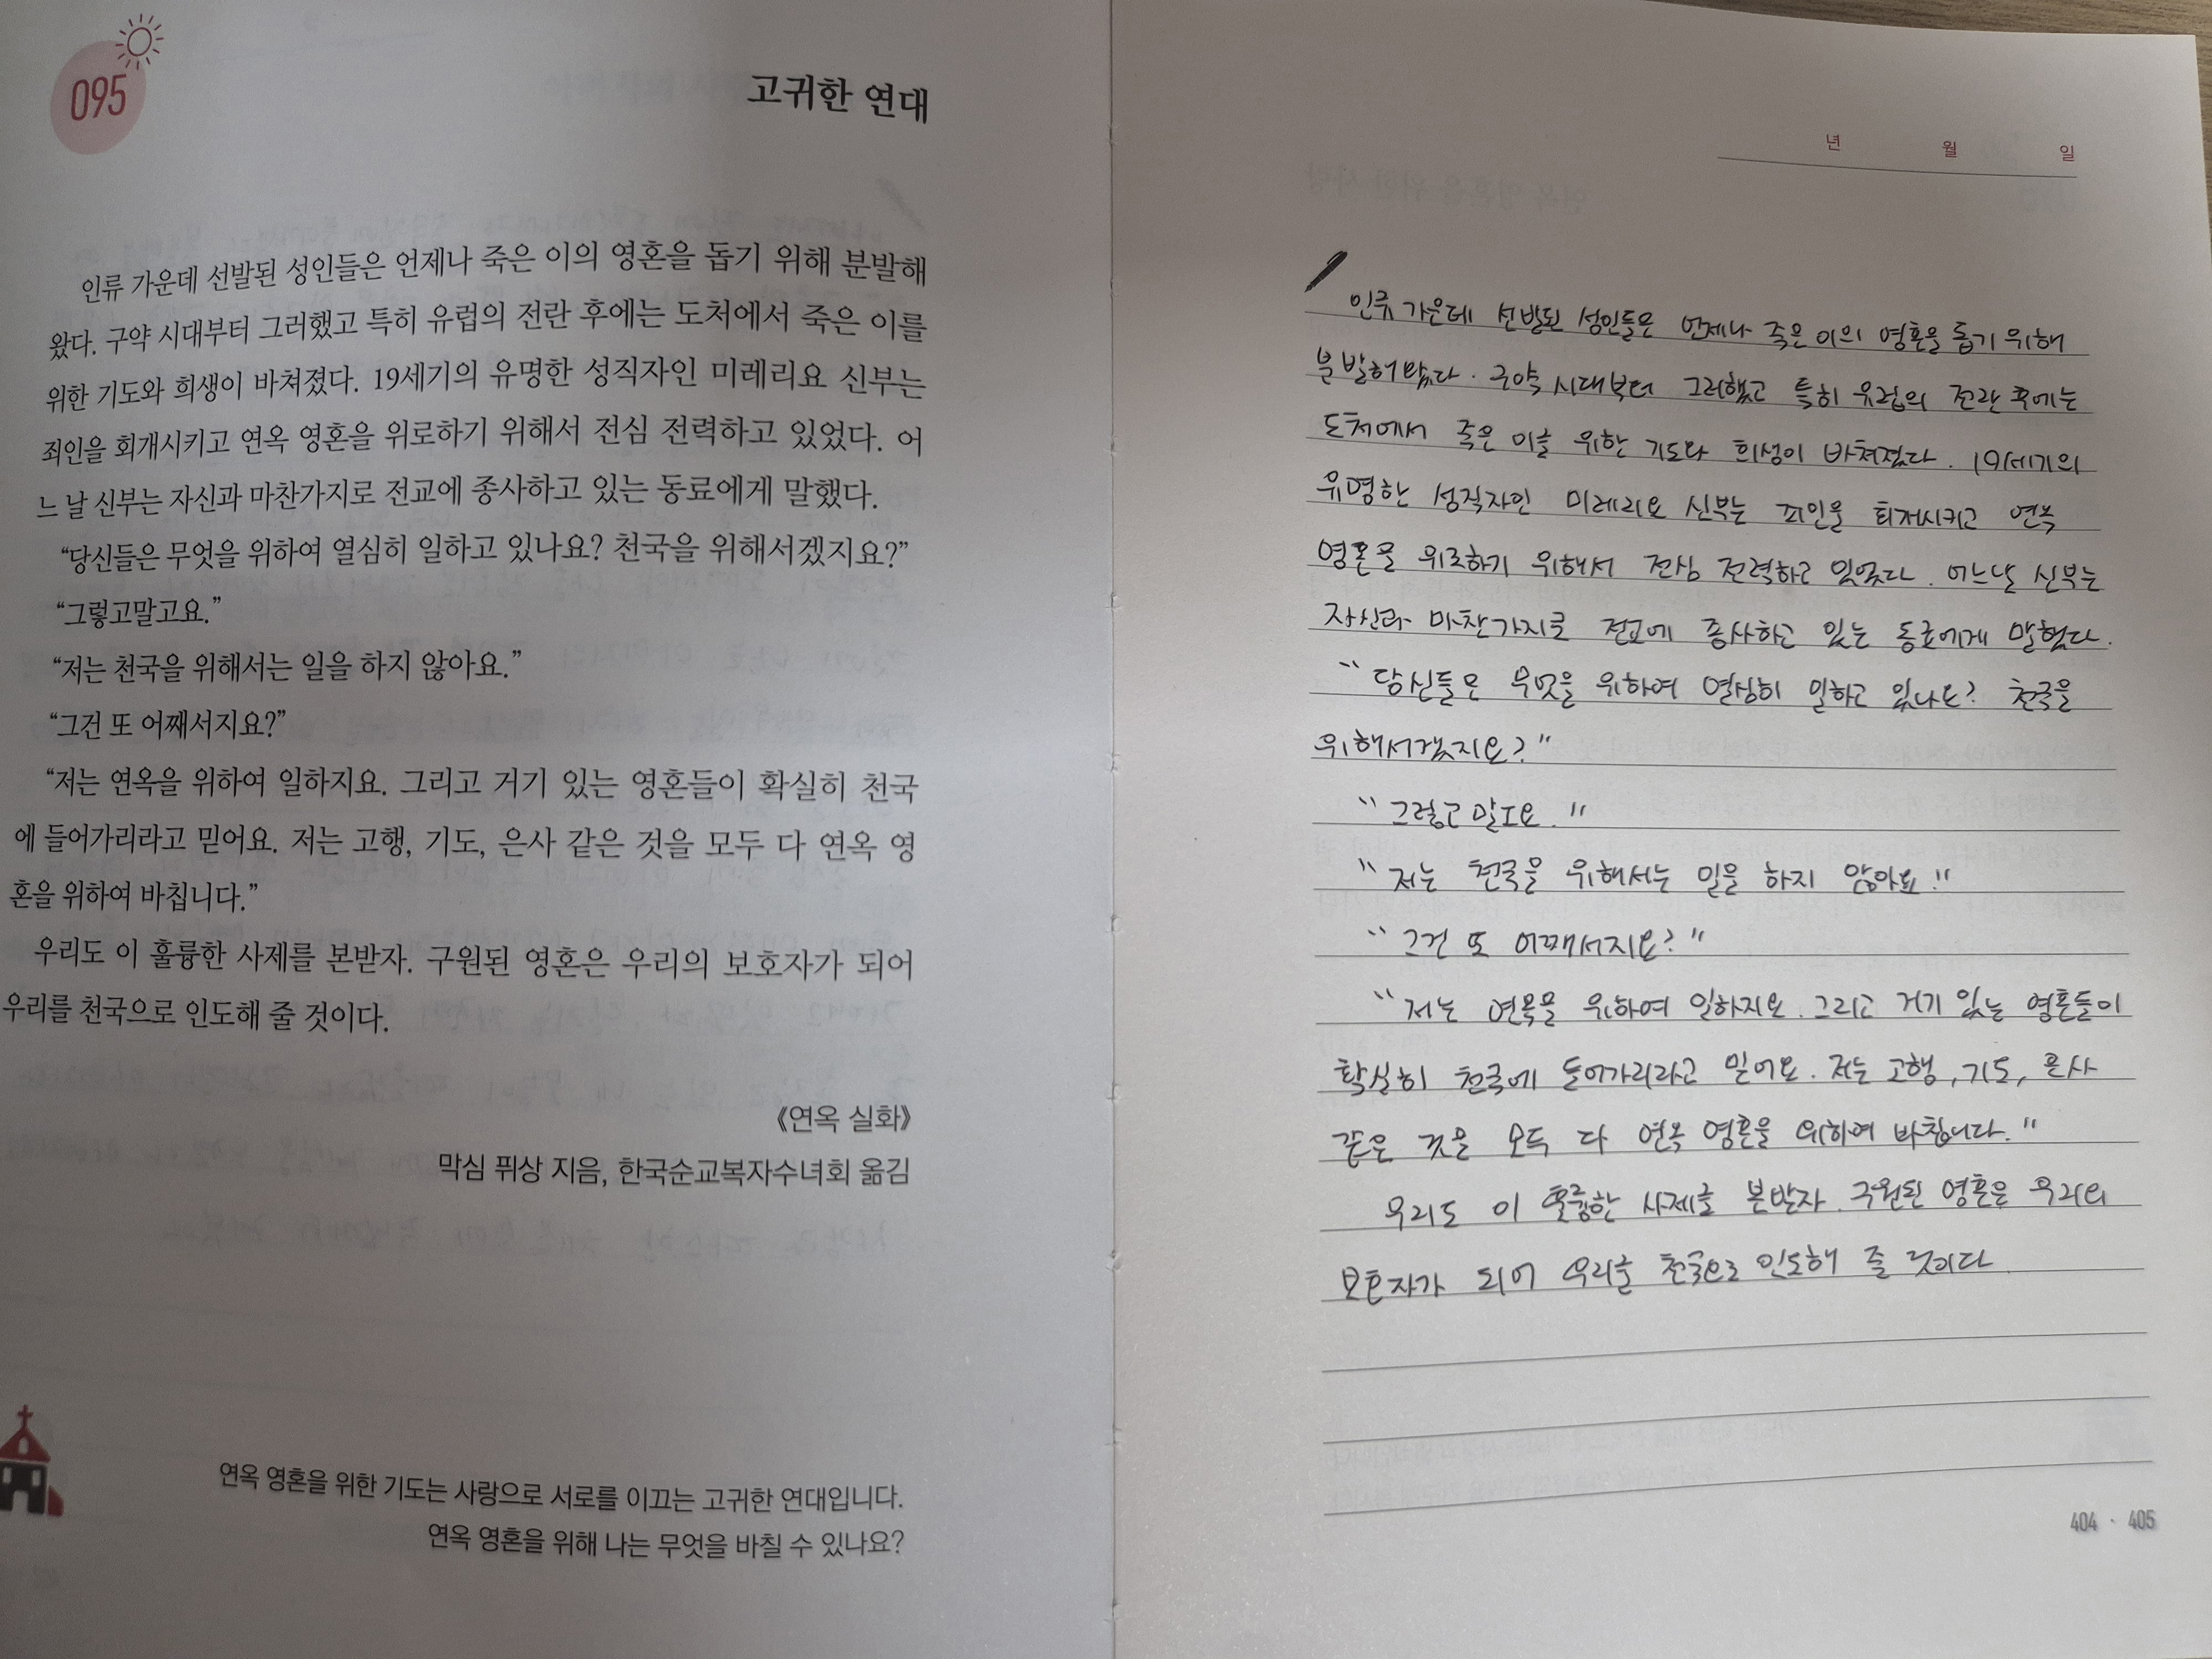 095
고귀한 연대
인류 가운데 선발된 성인들은 언제나 죽은 이의 영혼을 돕기 위해 분발해
왔다. 구약 시대부터 그러했고 특히 유럽의 전란 후에는 도처에서 죽은 이를
위한 기도와 희생이 바쳐졌다. 19세기의 유명한 성직자인 미레리요 신부는
죄인을 회개시키고 연옥 영혼을 위로하기 위해서 전심 전력하고 있었다. 어
느 날 신부는 자신과 마찬가지로 전교에 종사하고 있는 동료에게 말했다.
“당신들은 무엇을 위하여 열심히 일하고 있나요? 천국을 위해서겠지요?”
“그렇고말고요.”
“저는 천국을 위해서는 일을 하지 않아요.”
“그건 또 어째서지요?”
“저는 연옥을 위하여 일하지요. 그리고 거기 있는 영혼들이 확실히 천국
에 들어가리라고 믿어요. 저는 고행, 기도, 은사 같은 것을 모두 다 연옥 영
혼을 위하여 바칩니다.”
우리도 이 훌륭한 사제를 본받자. 구원된 영혼은 우리의 보호자가 되어
우리를 천국으로 인도해 줄 것이다.
《연옥 실화》
막심 퓌상 지음, 한국순교복자수녀회 옮김
연옥 영혼을 위한 기도는 사랑으로 서로를 이끄는 고귀한 연대입니다.
연옥 영혼을 위해 나는 무엇을 바칠 수 있나요?
년 월 일
인류 가운데 선발된 성인들은 언제나 죽은 이의 영혼을 돕기 위해
분발해 왔다. 구약 시대부터 그러했고 특히 유럽의 전란 후에는
도처에서 죽은 이를 위한 기도와 희생이 바쳐졌다. 19세기의
유명한 성직자인 미레리요 신부는 죄인을 회개시키고 연옥
영혼을 위로하기 위해서 전심 전력하고 있었다. 어느날 신부는
자신과 마찬가지로 전교에 종사하고 있는 동료에게 말했다.
“당신들은 무엇을 위하여 열심히 일하고 있나요? 천국을
위해서겠지요?”
“그렇고 말고요.”
“저는 천국을 위해서는 일을 하지 않아요.”
“그건 또 어째서지요?”
“저는 연옥을 위하여 일하지요. 그리고 거기 있는 영혼들이
확실히 천국에 들어가리라고 믿어요. 저는 고행, 기도, 은사
같은 것을 모두 다 연옥 영혼을 위하여 바칩니다.”
우리도 이 훌륭한 사제를 본받자. 구원된 영혼은 우리의
보호자가 되어 우리를 천국으로 인도해 줄 것이다.
404 · 405